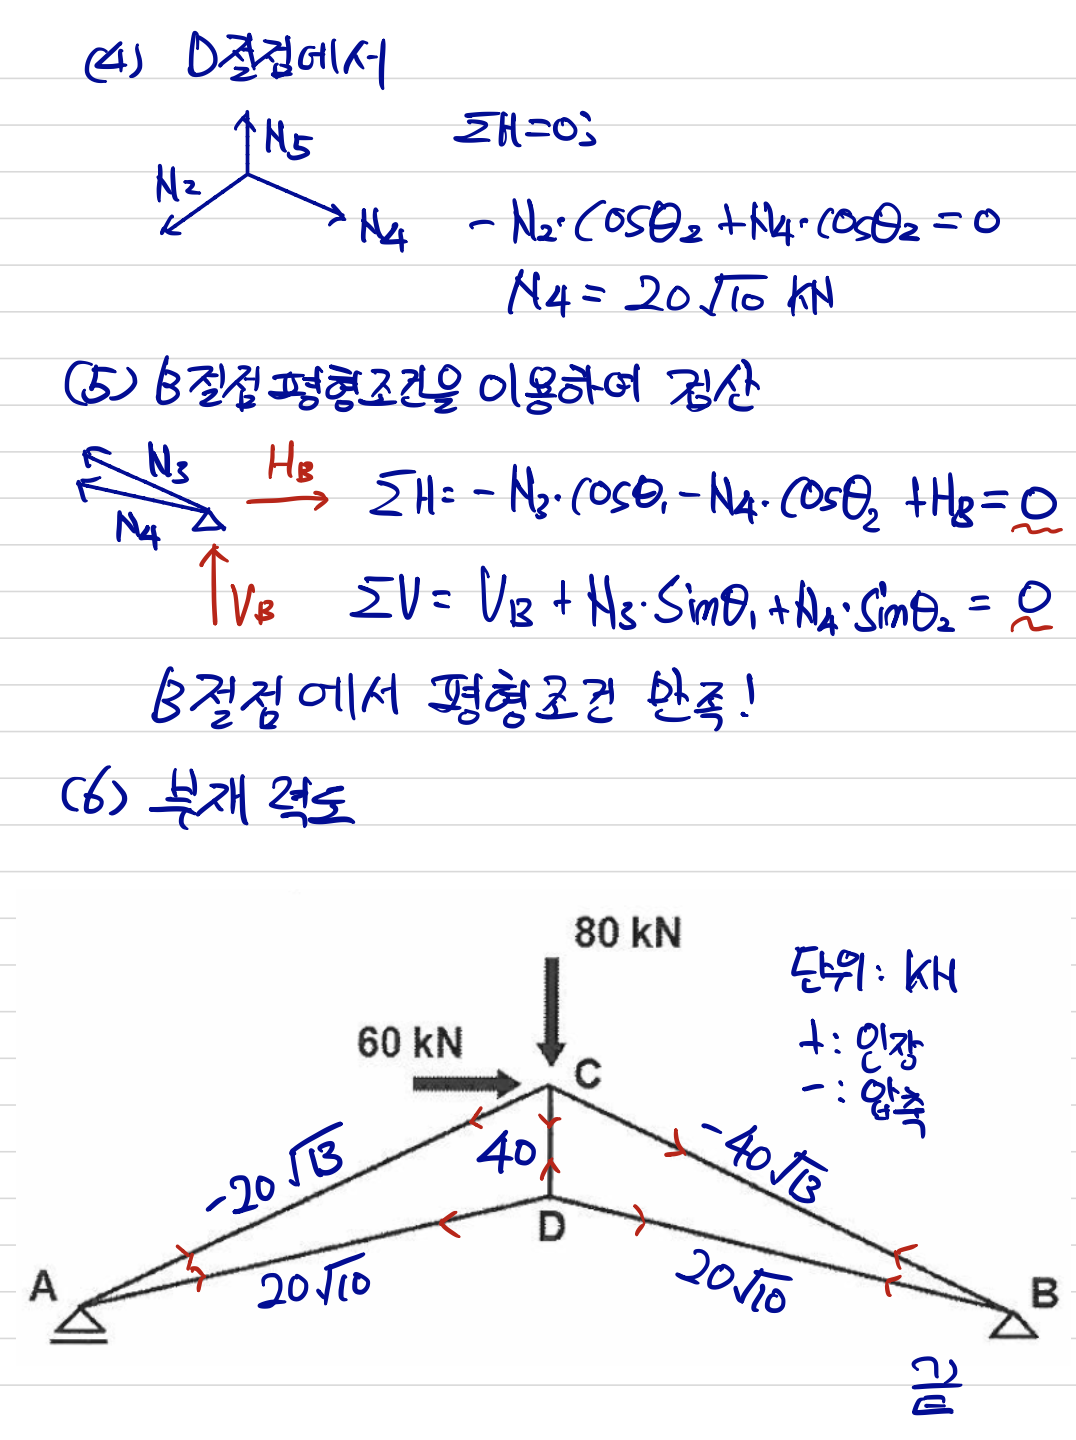 (4) D절점에서
N5
ΣH=0;
N2
N4
-N2·cosθ2+N4·cosθ2=0
N4=20√10 kN
(5) B절점 평형조건을 이용하여 검산
N3
HB
ΣH=-N3·cosθ1-N4·cosθ2+HB=0
N4
VB
ΣV=VB+N3·sinθ1+N4·sinθ2=0
B절점에서 평형조건 만족!
(6) 부재력도
80 kN
단위: kN
60 kN
+: 인장
C
-: 압축
-20√13
40
-40√13
D
A
20√10
20√10
B
끝